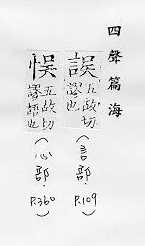 四聲篇海
誤 五故切 謬也
（言部．P.109）
悞 五故切 謬誤也
（心部．P.360）